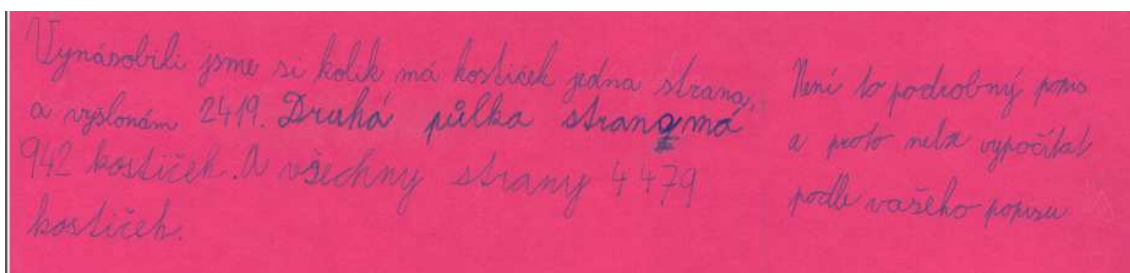 Vynásobili jsme si kolik má kostiček jedna strana,
a vyšlonám 2419. Druhá půlka strany má
942 kostiček. A všechny strany 4 479
kostiček.
Není to podrobný popis
a proto nelze vypočítat
podle vašeho popisu